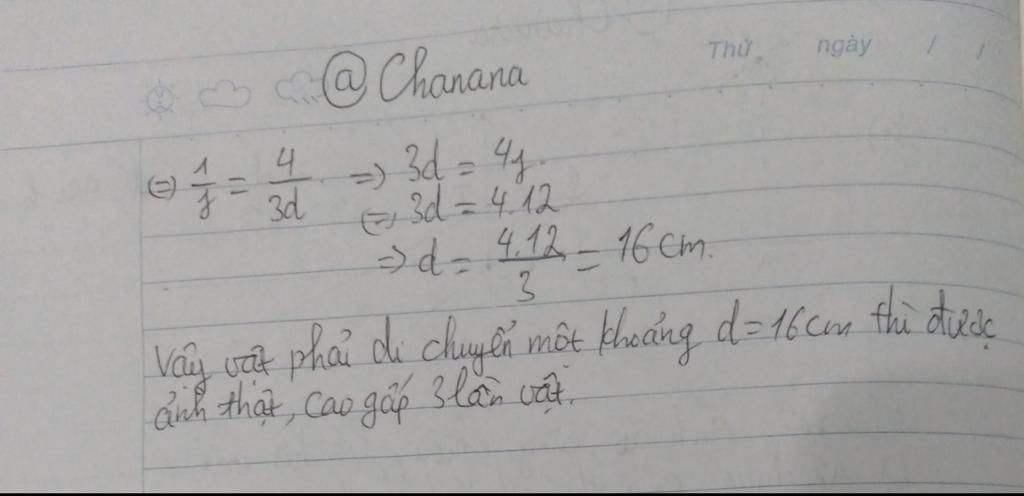 Thứ ngày / /
@Chanana
⇔ 1/f = 4/3d ⇒ 3d = 4f.
⇔ 3d = 4.12
⇒ d = 4.12/3 = 16 cm.
Vậy vật phải di chuyển một khoảng d = 16 cm thì được
ảnh thật, cao gấp 3 lần vật.